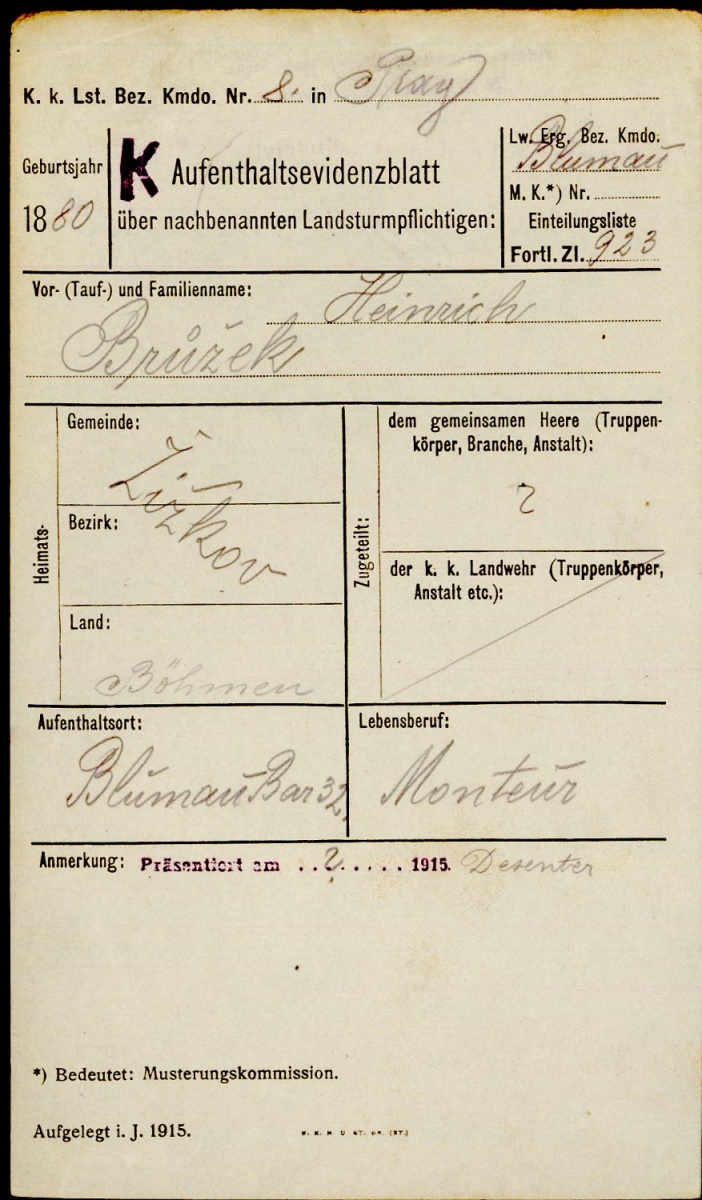 K. k. Lst. Bez. Kmdo. Nr. 8. in Prag
Geburtsjahr
1880
K Aufenthaltsevidenzblatt
über nachbenannten Landsturmpflichtigen:
Lw. Erg. Bez. Kmdo.
Blumau
M. K.*) Nr.
Einteilungsliste
Fortl. Zl. 923
Vor- (Tauf-) und Familienname: Heinrich
Brůžek
Heimats-
Gemeinde:
Žižkov
Bezirk:
Land:
Böhmen
Zugeteilt:
dem gemeinsamen Heere (Truppen-
körper, Branche, Anstalt):
?
der k. k. Landwehr (Truppenkörper,
Anstalt etc.):
Aufenthaltsort:
Blumau Bar 32.
Lebensberuf:
Monteur
Anmerkung: Präsentiert am ..?..... 1915.
*) Bedeutet: Musterungskommission.
Aufgelegt i. J. 1915.